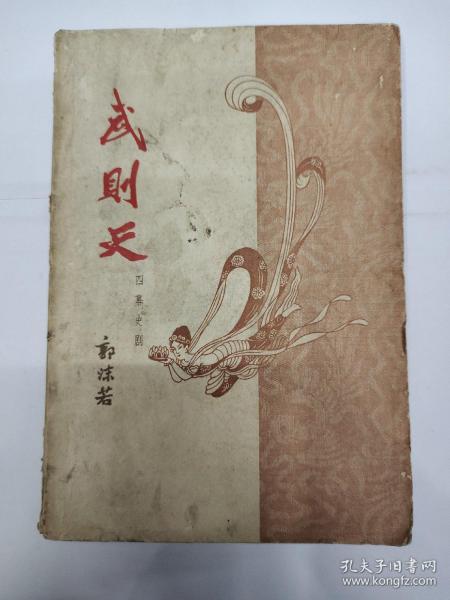 武則天
四幕史劇
郭沫若
孔夫子旧书网
www.kongfz.com